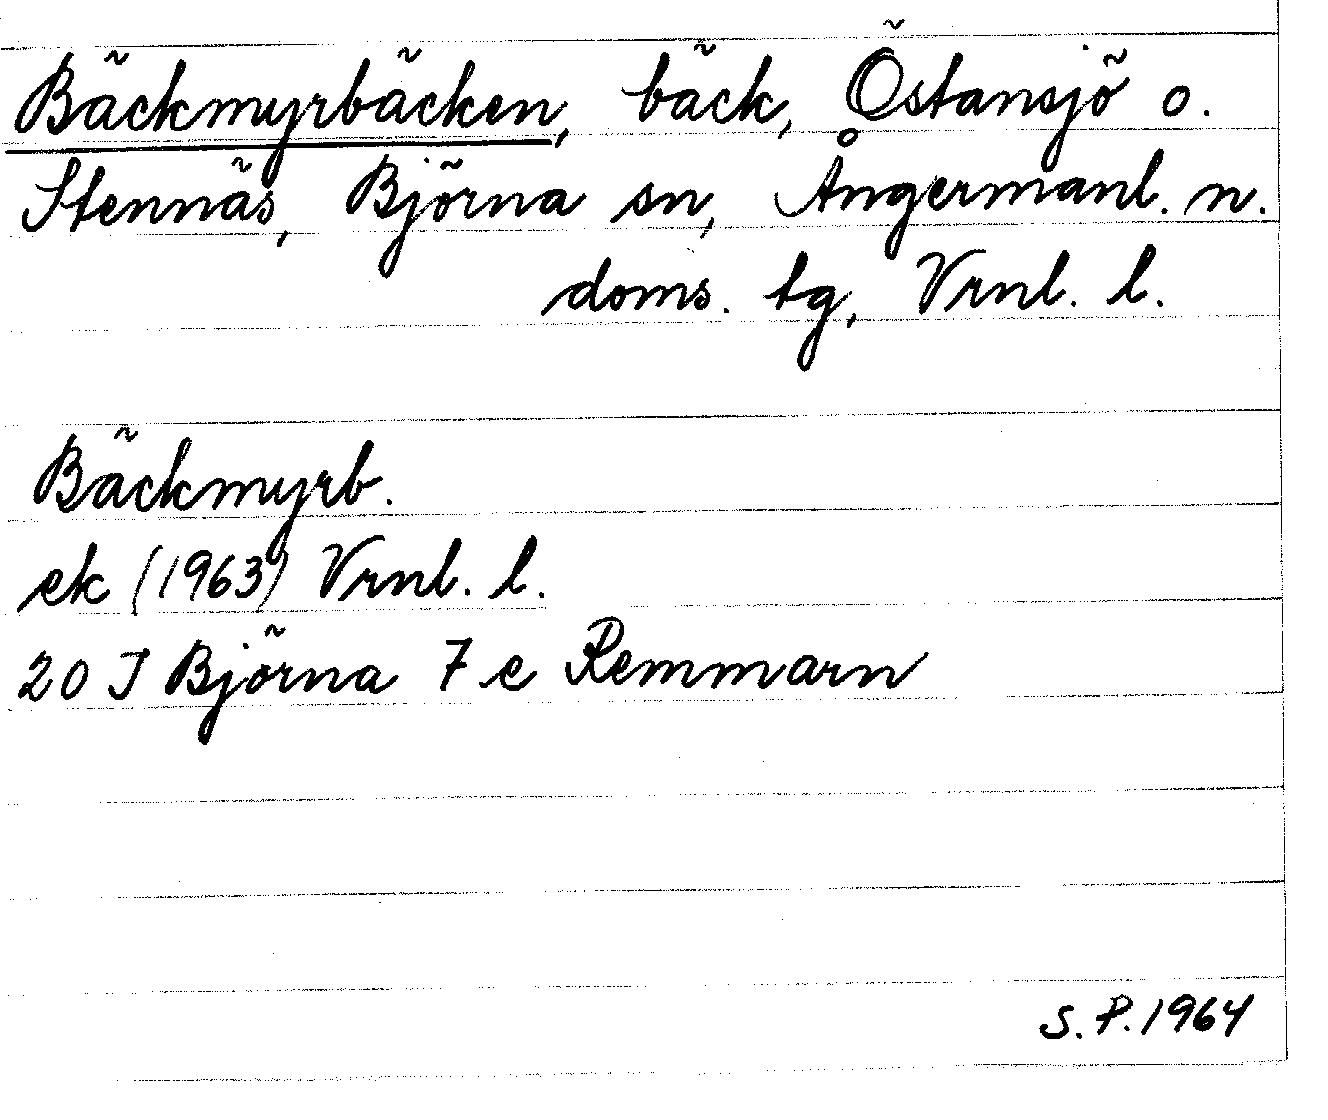 Bäckmyrbäcken, bäck, Östansjö o.
Stennäs, Björna sn, Ångermanl. n.
doms. tg, Vrnl. l.
Bäckmyrb.
ek (1963) Vrnl. l.
20 J Björna 7 e Remmarn
S. P. 1964